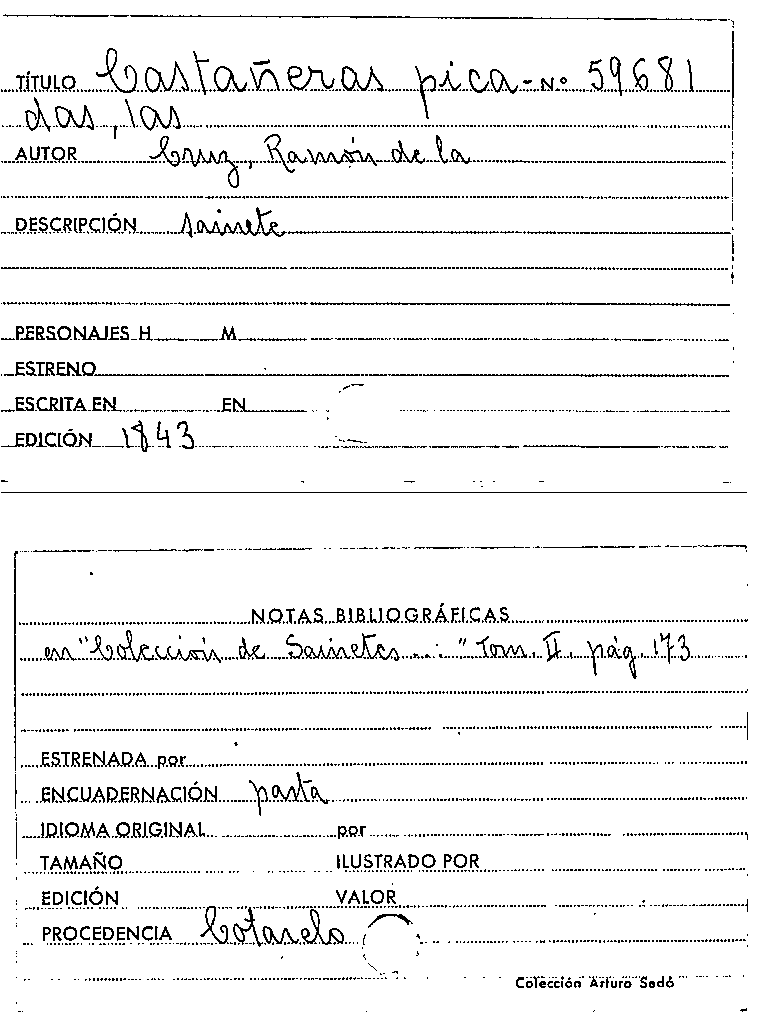 TÍTULO Castañeras pica- Nº 59681
das, las
AUTOR Cruz, Ramón de la
DESCRIPCIÓN sainete
PERSONAJES H M
ESTRENO
ESCRITA EN EN
EDICIÓN 1843
NOTAS BIBLIOGRÁFICAS
en "Colección de Sainetes...:" Tom. II. pág. 173
ESTRENADA por
ENCUADERNACIÓN pasta
IDIOMA ORIGINAL por
TAMAÑO ILUSTRADO POR
EDICIÓN VALOR
PROCEDENCIA Cotarelo
Colección Arturo Sedó